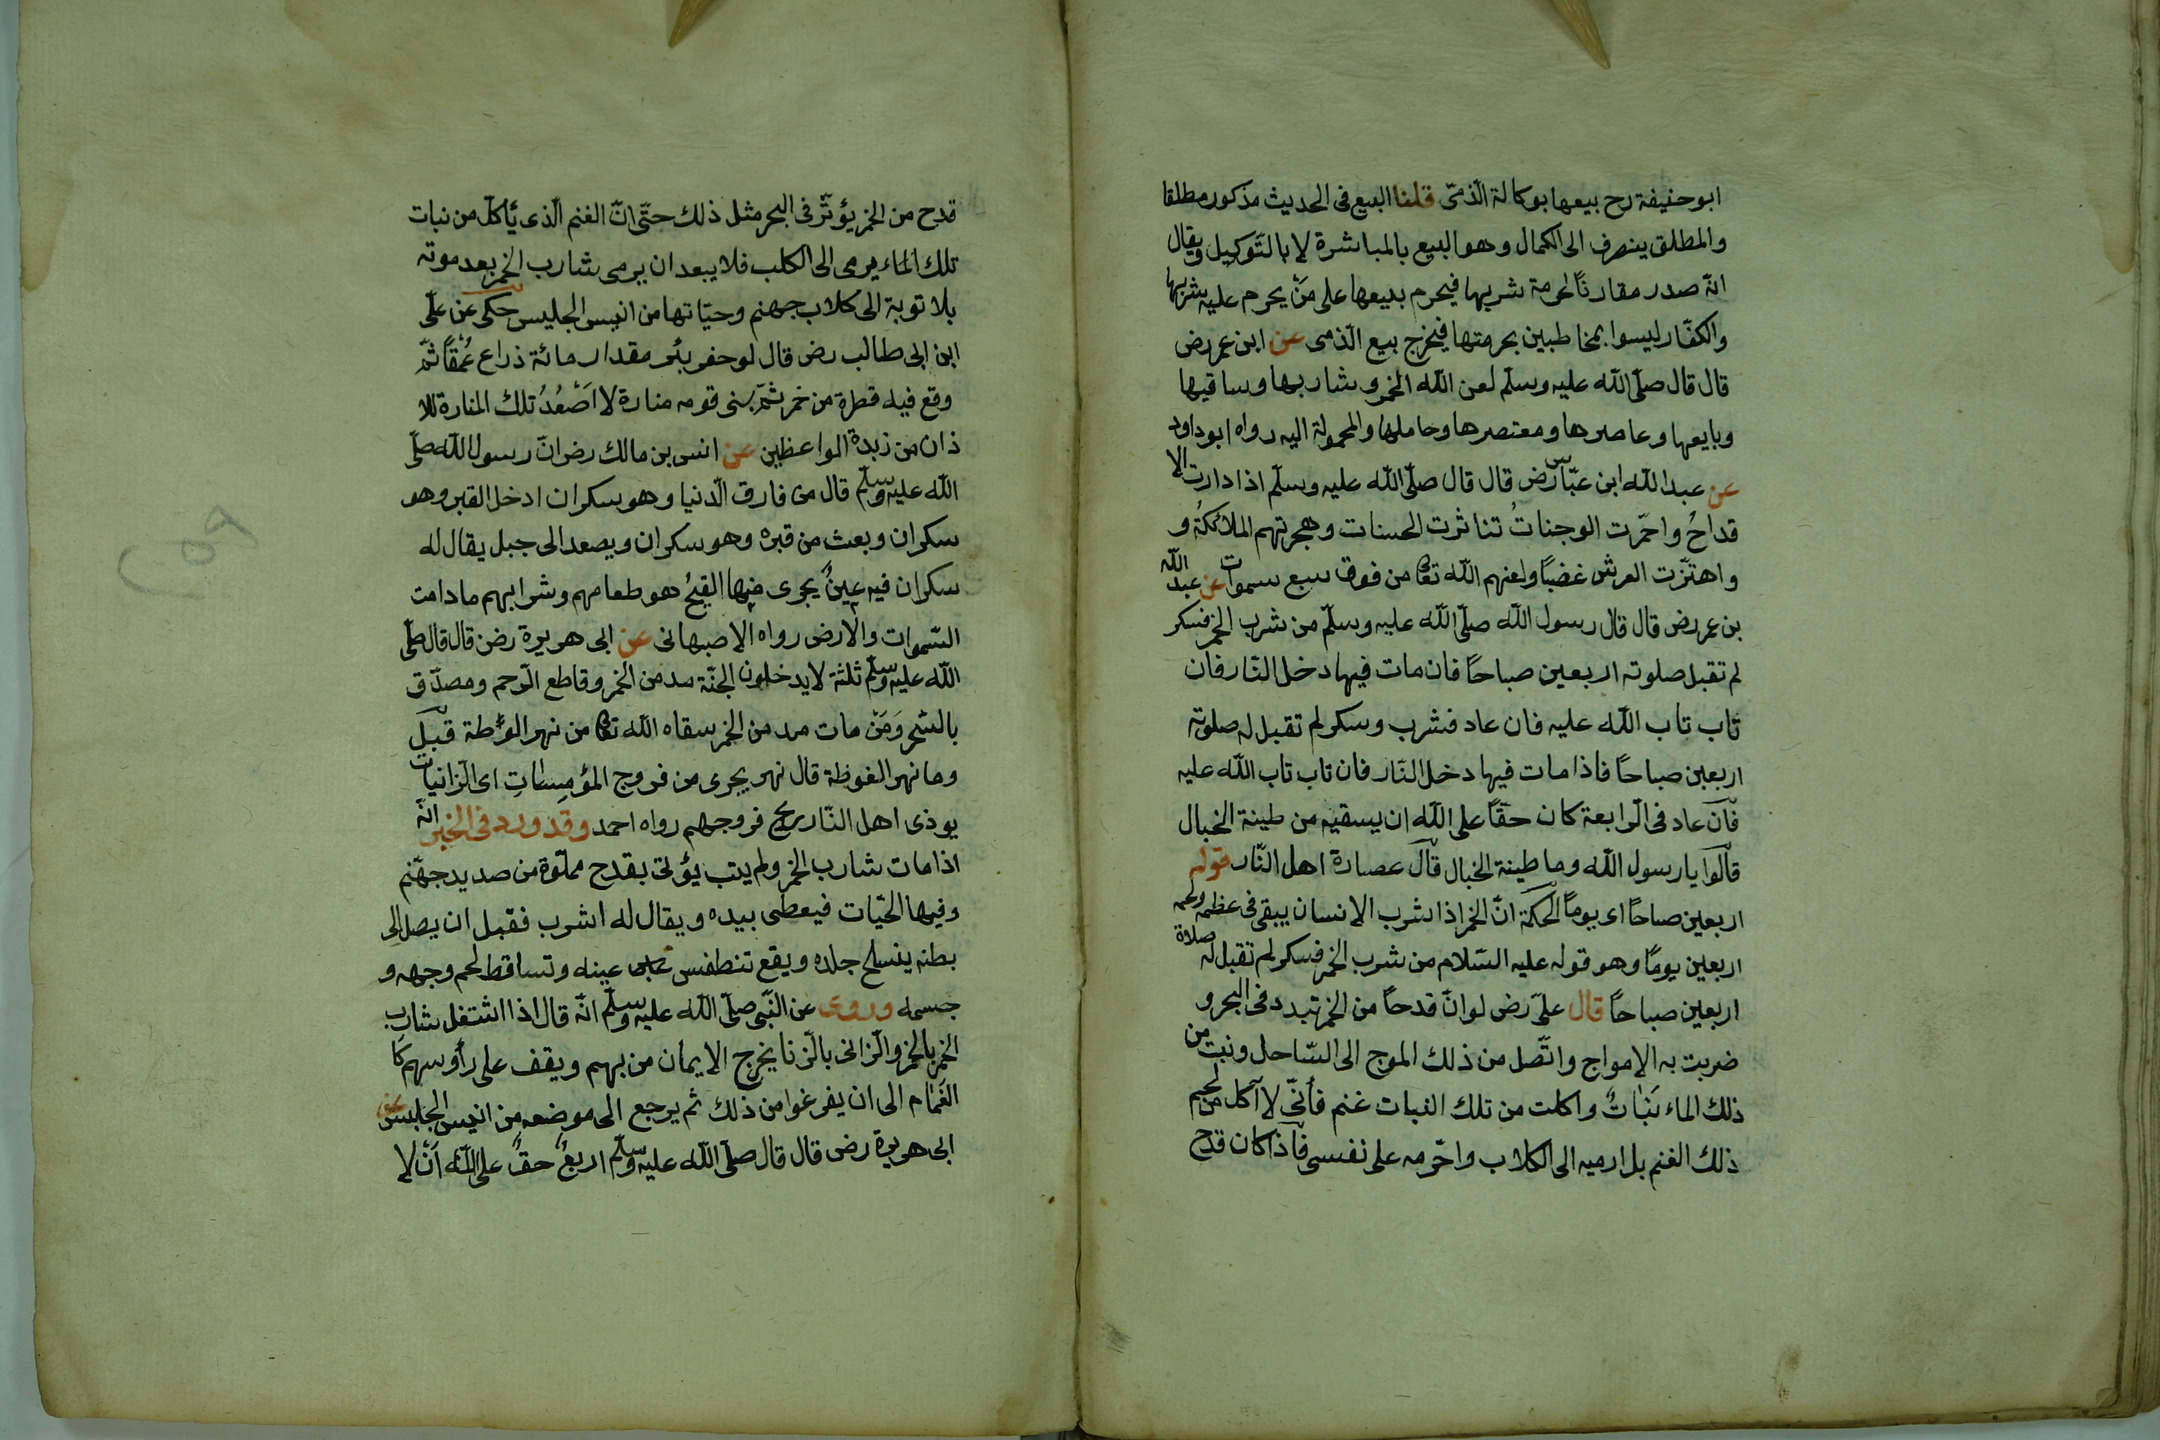 ابو حنيفة رح بيعها بوكالة الذمّى قلنا البيع فى الحديث مذكور مطلقا
والمطلق ينصرف الى الكمال وهو البيع بالمباشرة لا بالتّوكيل ويقال
انّه صدر مقارنًا لحرمة شربها فيحرم بيعها على مَنْ يحرم عليه شربها
والكفّار ليسوا بمخاطبين بحرمتها فيخرج بيع الذمى عن ابن عمر رض
قال قال صلّى اللّه عليه وسلّم لعن اللّه الخمر وشاربها وساقيها
وبايعها وعاصرها ومعتصرها وحاملها والمحمولة اليه رواه ابو داود
عن عبد اللّه ابن عبّاس رض قال قال صلّى اللّه عليه وسلّم اذا دارت الا
قداحُ واحمّرت الوجناتُ تناثرت الحسنات وهجرتهم الملائكةُ و
واهتزّت العرش غضبًا ولعنهم اللّه تعا من فوق سبع سموات عن عبد اللّه
بن عمر رض قال قال رسول اللّه صلّى اللّه عليه وسلّم من شرب الخمر فسكر
لم تقبل صلوته اربعين صباحًا فان مات فيها دخل النّار فان
تاب تاب اللّه عليه فان عاد فشرب وسكر لم تقبل له صلوته
اربعين صباحًا فاذا مات فيها دخل النّار فان تاب تاب اللّه عليه
فان عاد فى الرّابعة كان حقّا على اللّه ان يسقيه من طينة الخبال
قالوا يا رسول اللّه وما طينة الخبال قال عصارة اهل النّار قوله
اربعين صباحًا اى يومًا الحكمة انّ الخمر اذا شرب الانسان يبقى فى عظمه ولحمه
اربعين يومًا وهو قوله عليه السّلام من شرب الخمر فسكر لم تقبل له صلاة
اربعين صباحًا قال علىّ رض لو انّ قدحًا من الخمر تبدد فى البحر و
ضربت به الامواج واتّصل من ذلك الموج الى السّاحل ونبت من
ذلك الماء نَبَاتٌ واكلت من تلك النبات غنم فأنّى لا آكل من لحم
ذلك الغنم بل ارميه الى الكلاب واحّرمه على نفسى فاذا كان قدح
قدح من الخمر يؤثّر فى البحر مثل ذلك حتّى انّ الغنم الّذى يأكل من نبات
تلك الماء يرمى الى الكلب فلا يبعد ان يرمى شارب الخمر بعد موته
بلا توبة الى كلاب جهنم وحيّاتها من انيس الجليس حكى عن علّى
ابن ابى طالب رض قال لو حفر بئر مقدار مائة ذراع عُمْقًا ثمّ
وقع فيه قطرة من خمر ثمّ بنى قومه منارة لا اَصْعُدُ تلك المنارة للا
ذان من زبدة الواعظين عن انس بن مالك رض انّ رسول اللّه صلّى
اللّه عليه وسلّم قال من فارق الدّنيا وهو سكران ادخل القبر وهو
سكران وبعث من قبره وهو سكران ويصعد الى جبل يقال له
سكران فيه عينٌ يجرى منها القيحُ هو طعامهم وشرابهم ما دامت
السّموات والارض رواه الاصبهانى عن ابى هريرة رض قال قال صلّى
اللّه عليه وسلّم ثلثة لا يدخلون الجنّة مدمن الخمر وقاطع الرّحم ومصدّق
بالسّحر وَمَنْ مات مدمن الخمر سقاه اللّه تعا من نهر الغوطة قيل
وما نهر الغوظة قال نهر يجرى من فروج المؤمِساتِ اى الزّانيات
يوذى اهل النّار ريح فروجهم رواه احمد وقد ورد فى الخبر انّه
اذا مات شارب الخمر ولم يتب يؤتى بقدح مملّوة من صديد جهنّم
وفيها الحيّات فيعطى بيده ويقال له اشرب فقبل ان يصل الى
بطنه ينسلح جلده ويقع عينه وتساقط لحم وجهه و
جسمه وروى عن النّبى صلّى اللّه عليه وسلّم انّه قال اذا اشتغل شارب
الخمر بالخمر والزّانى بالزّنا يخرج الايمان من بهم ويقف على رأوسهم كَا
الغَمَام الى ان يفرغوا من ذلك ثم يرجع الى موضعه من انيس الجليس عن
ابى هريرة رض قال قال صلّى اللّه عليه وسلّم اربعٌ حقٌ على اللّه اَنْ لا